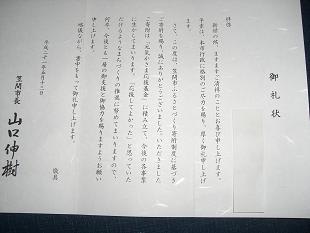 御礼状
拝啓
新緑の候、ますますご清祥のこととお喜び申し上げます。
平素は、当市行政に格別のご尽力を賜り、厚く御礼申し上げ
ます。
さて、この度は、笠間市ふるさとづくり寄附制度に基づき
ご寄附を賜り、誠にありがとうございました。いただきました
ご寄附は、「元気かさま応援基金」に積み立て、今後の各事業
に生かしてまいります。「応援してよかった」と思っていた
だけるようなまちづくりの推進に努めてまいりますので、
何卒、今後とも一層の御支援と御協力を賜りますようお願い
申し上げます。
略儀ながら、書中をもって御礼申し上げます。
敬具
平成二十一年五月十二日
笠間市長 山口伸樹